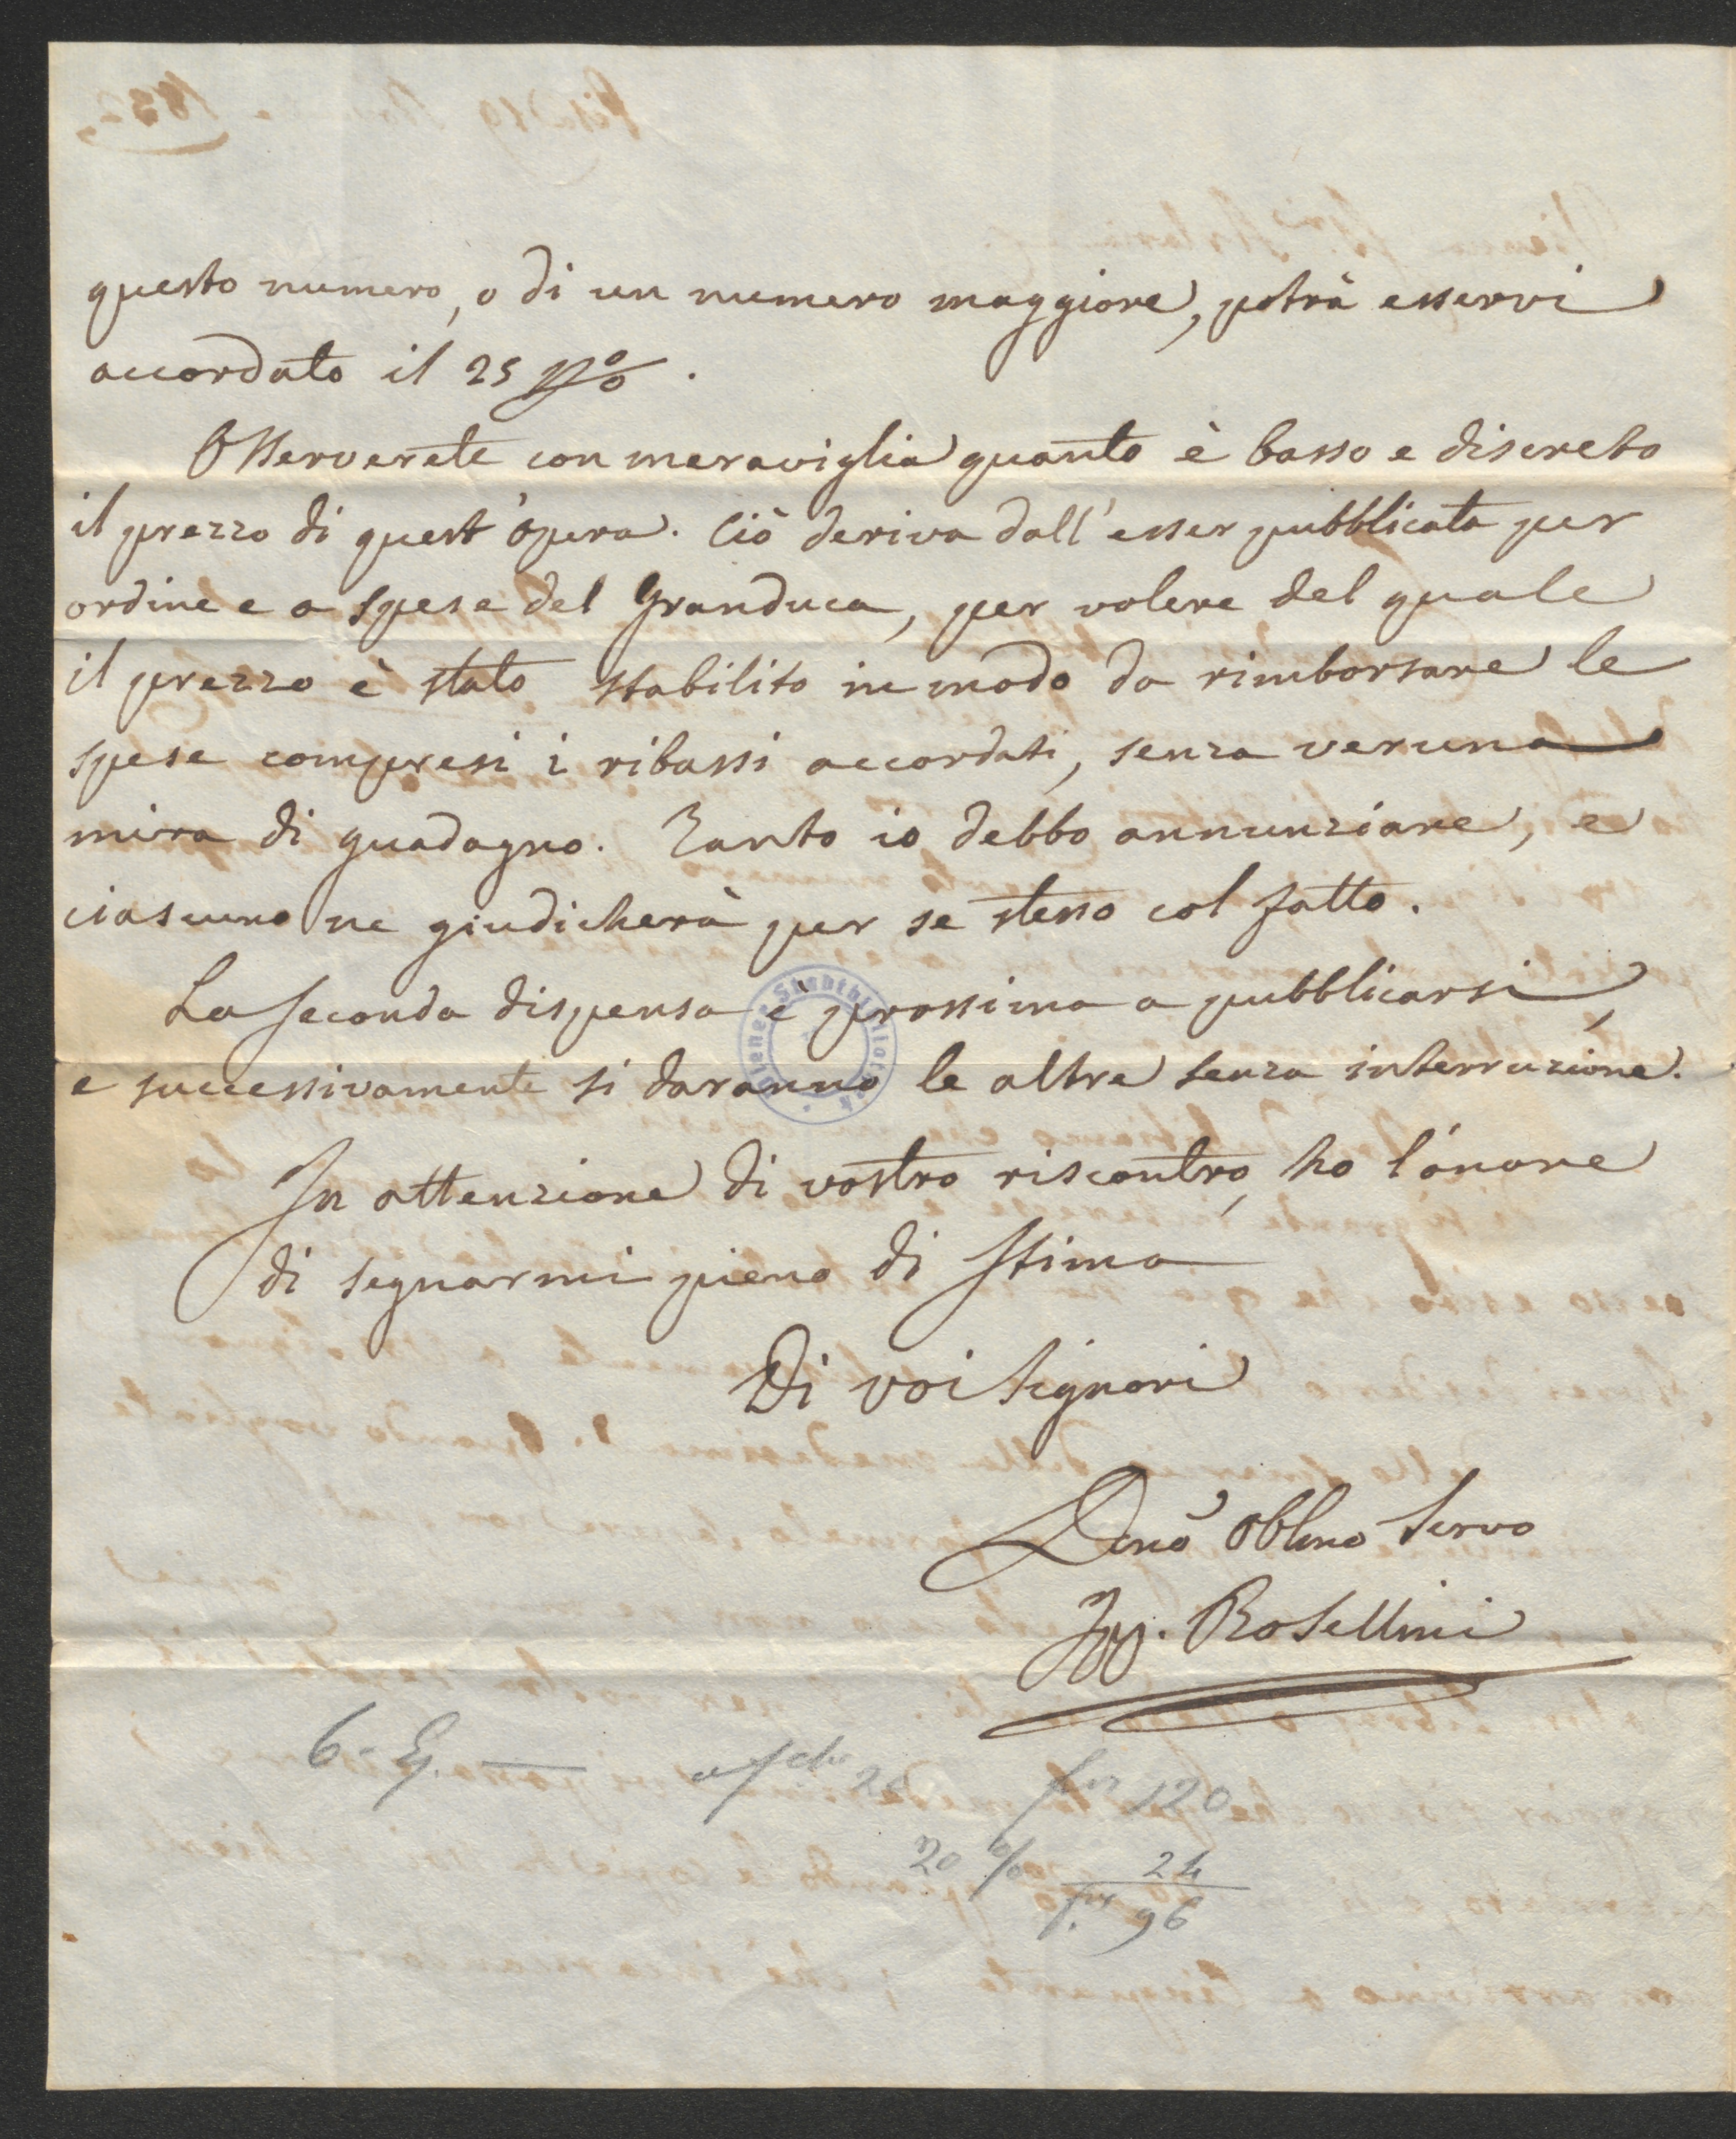 questo numero, o di un numero maggiore, potrà esservi
accordato il 25 p%.
Osserverete con meraviglia quanto è basso e discreto
il prezzo di quest'opera. Ciò deriva dall'esser pubblicata per
ordine e a spese del Granduca, per volere del quale
il prezzo è stato stabilito in modo da rimborsare le
spese compresi i ribassi accordati, senza veruna
mira di guadagno. Tanto io debbo annunziare, e
ciascuno ne giudicherà per se stesso col fatto.
La seconda dispensa è prossima a pubblicarsi,
e successivamente si daranno le altre senza interruzione.
In attenzione di vostro riscontro, ho l'onore
di segnarmi pieno di stima
Di voi Signori
Devo Obbmo Servo
Ipp. Rosellini
6 - E. — a 20 120
20 % 24
96